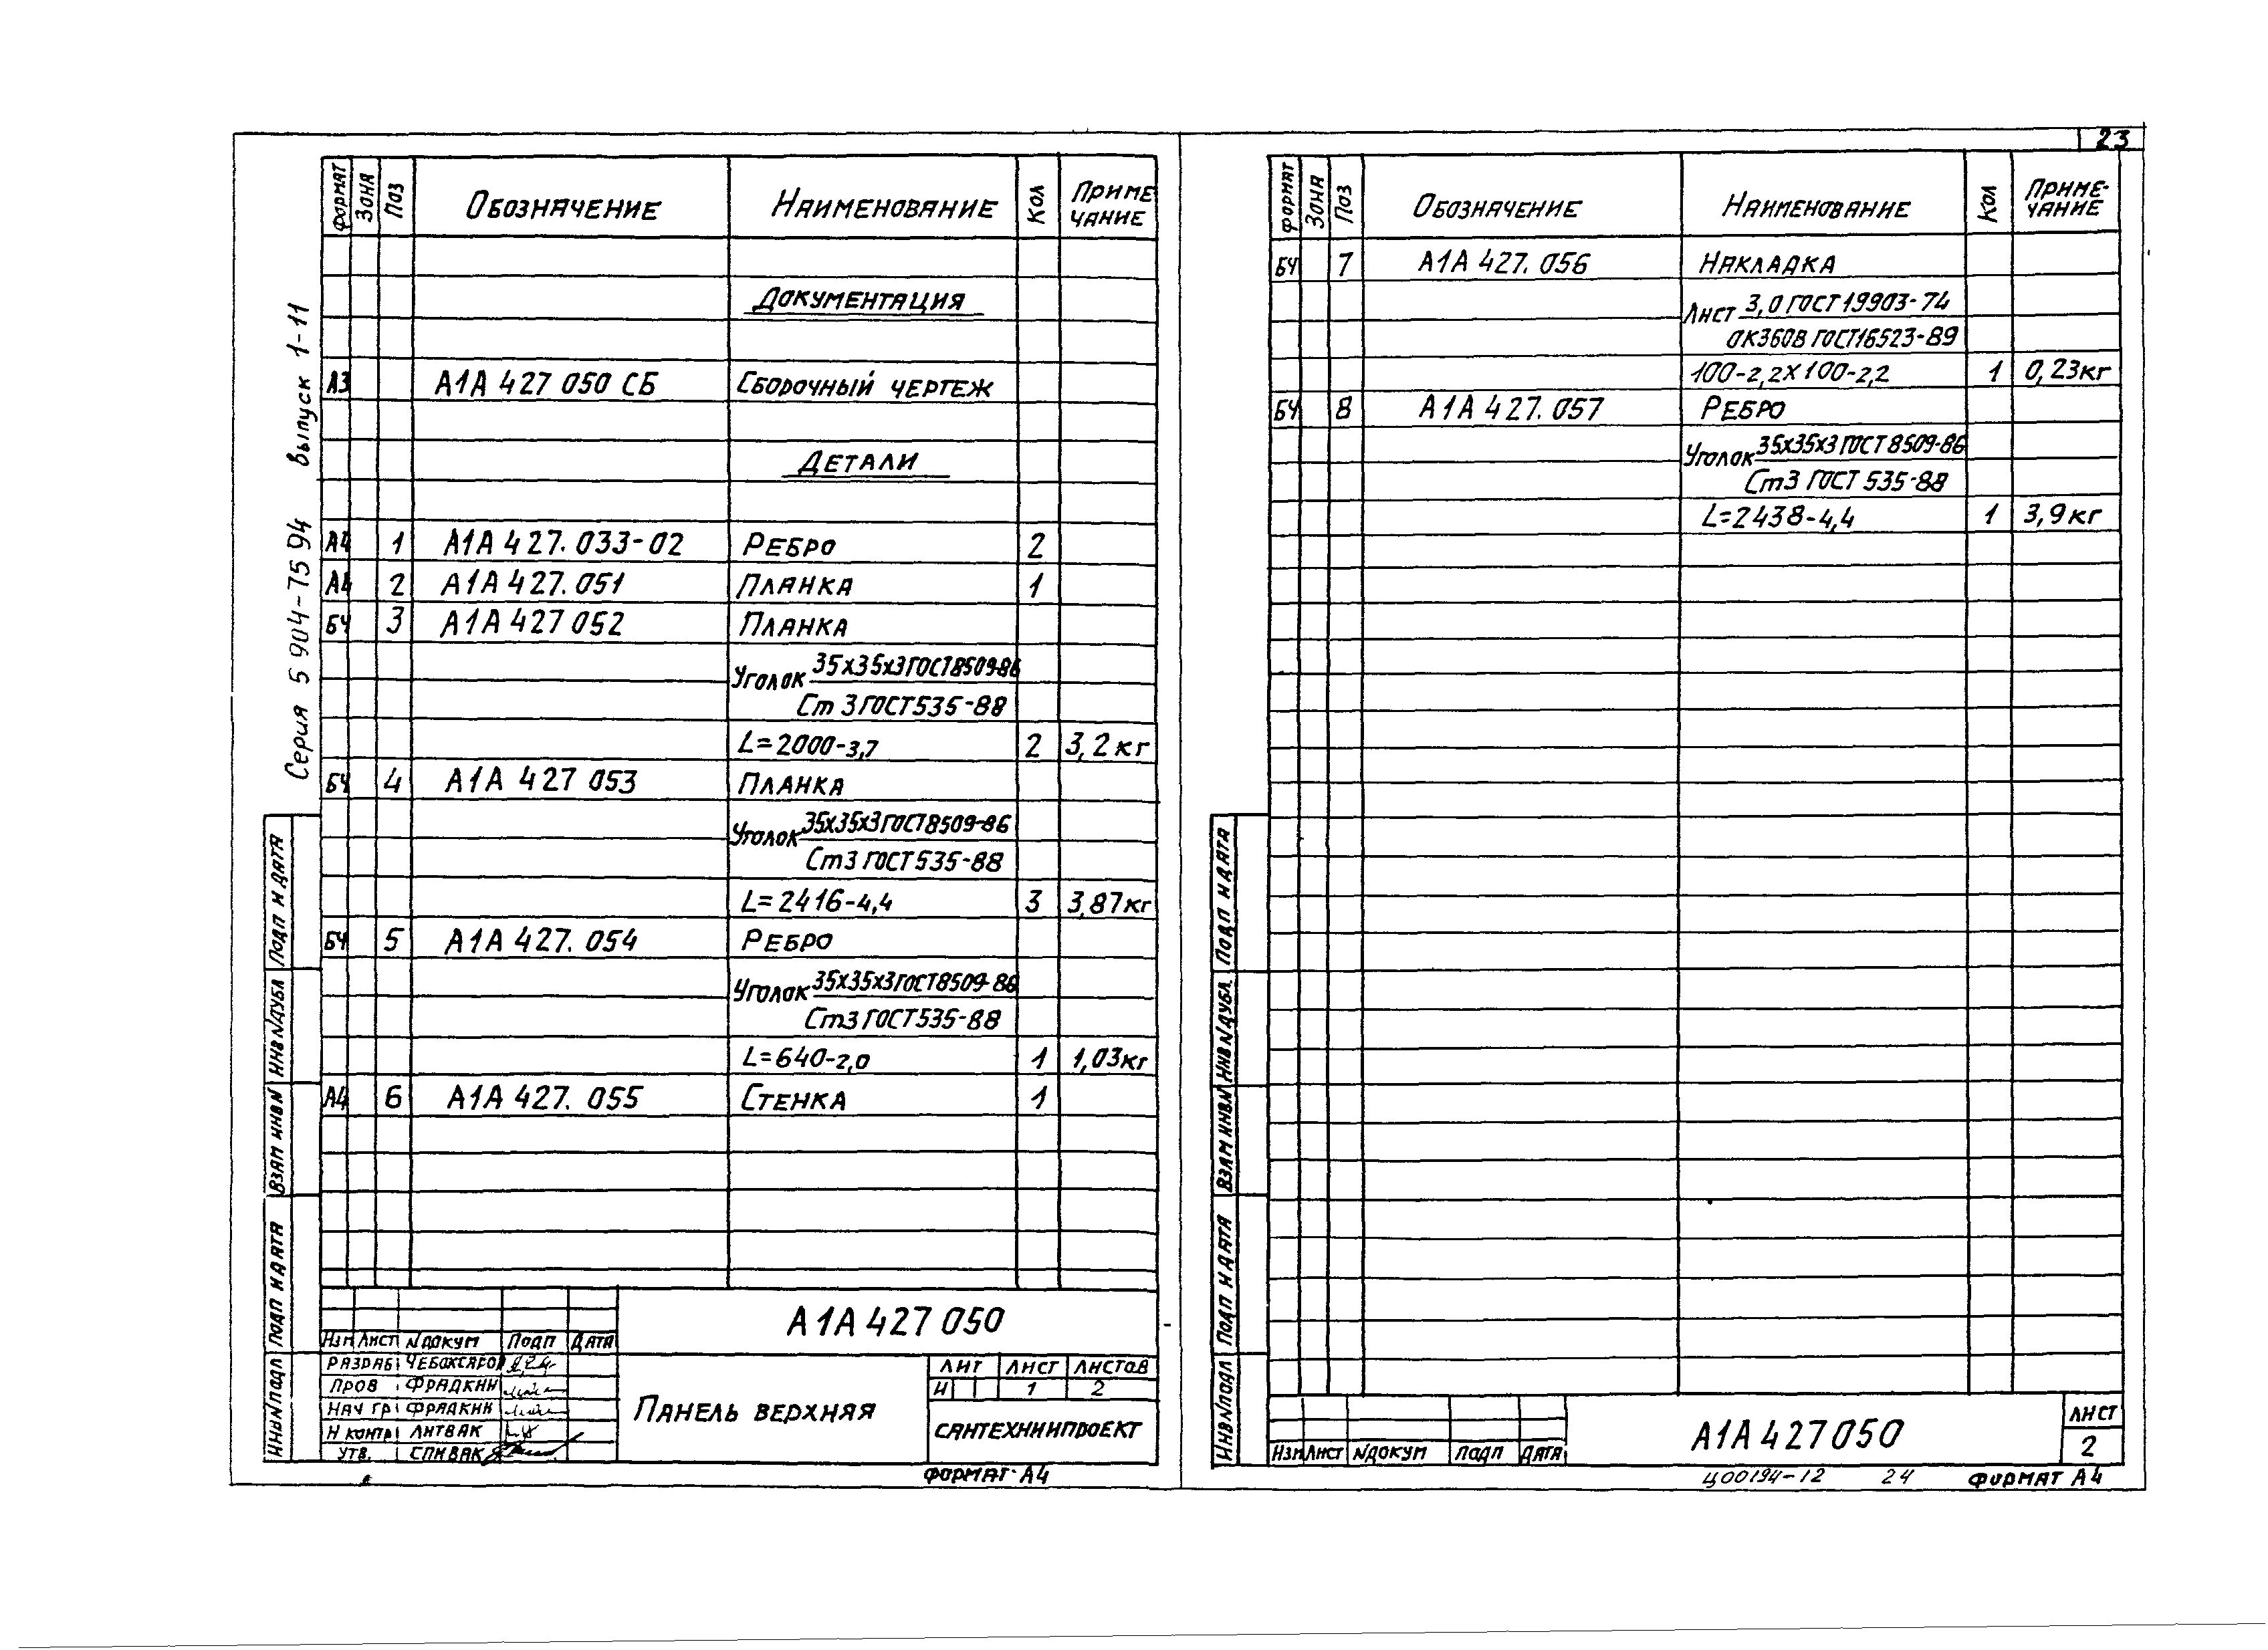 23
Серия 5 904-75 94 Выпуск 1-11
Формат Зона Поз Обозначение Наименование Кол Примечание
Документация
А3 А1А 427 050 СБ Сборочный чертеж
Детали
А4 1 А1А 427.033-02 Ребро 2
А4 2 А1А 427.051 Планка 1
БЧ 3 А1А 427 052 Планка
Уголок 35х35х3 ГОСТ 8509-86
Ст 3 ГОСТ 535-88
L=2000-3,7 2 3,2 кг
БЧ 4 А1А 427 053 Планка
Уголок 35х35х3 ГОСТ 8509-86
Ст3 ГОСТ 535-88
L=2416-4,4 3 3,87 кг
БЧ 5 А1А 427.054 Ребро
Уголок 35х35х3 ГОСТ 8509-86
Ст3 ГОСТ 535-88
L=640-2,0 1 1,03 кг
А4 6 А1А 427.055 Стенка 1
Подп и дата
Инв N дубл
Взам инв N
Подп и дата
Инв N подл
А1А 427 050
Изм Лист N докум Подп Дата
Разраб Чебоксаров
Пров Фрадкин
Нач гр Фрадкин
Н контр Литвак
Утв. Спивак
Панель верхняя
Лит Лист Листов
И 1 2
Сантехниипроект
Формат А4
Формат Зона Поз Обозначение Наименование Кол Примечание
БЧ 7 А1А 427.056 Накладка
Лист 3,0 ГОСТ 19903-74
ОК360В ГОСТ 16523-89
100-2,2х100-2,2 1 0,23 кг
БЧ 8 А1А 427.057 Ребро
Уголок 35х35х3 ГОСТ 8509-86
Ст3 ГОСТ 535-88
L=2438-4,4 1 3,9 кг
Подп и дата
Инв N дубл
Взам инв N
Подп и дата
Инв N подл
Изм Лист N докум Подп Дата
А1А 427 050
Лист
2
Ц00194-12 24 Формат А4